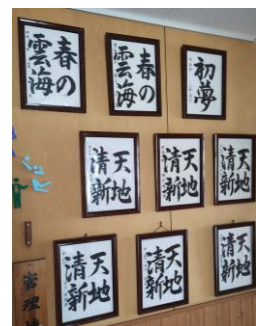 初夢
春の
雲海
春の
雲海
天地
清新
天地
清新
天地
清新
天地
清新
天地
清新
天地
清新
管理